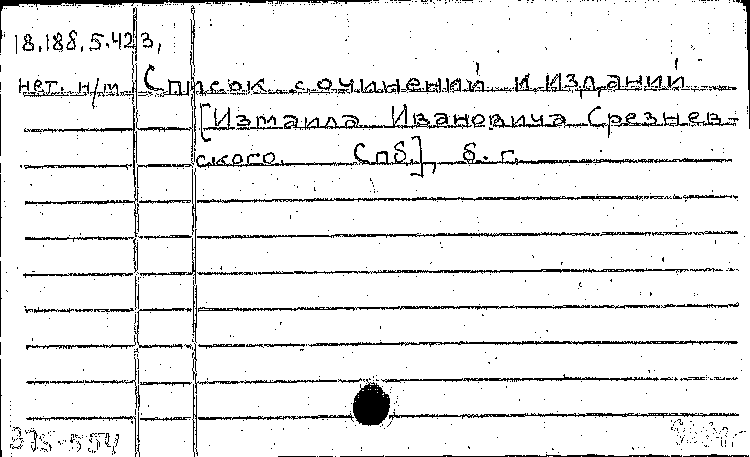 18.188.5.423,
нет. н/т Список сочинений и изданий
[Измаила Ивановича Срезнев-
ского. Спб.], б. г.
375-554